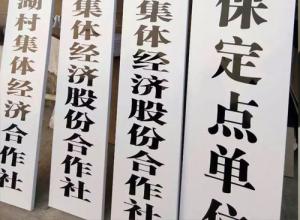 湖村集体经济合作社
集体经济股份合作社
集体经济股份合作社
保定点单位